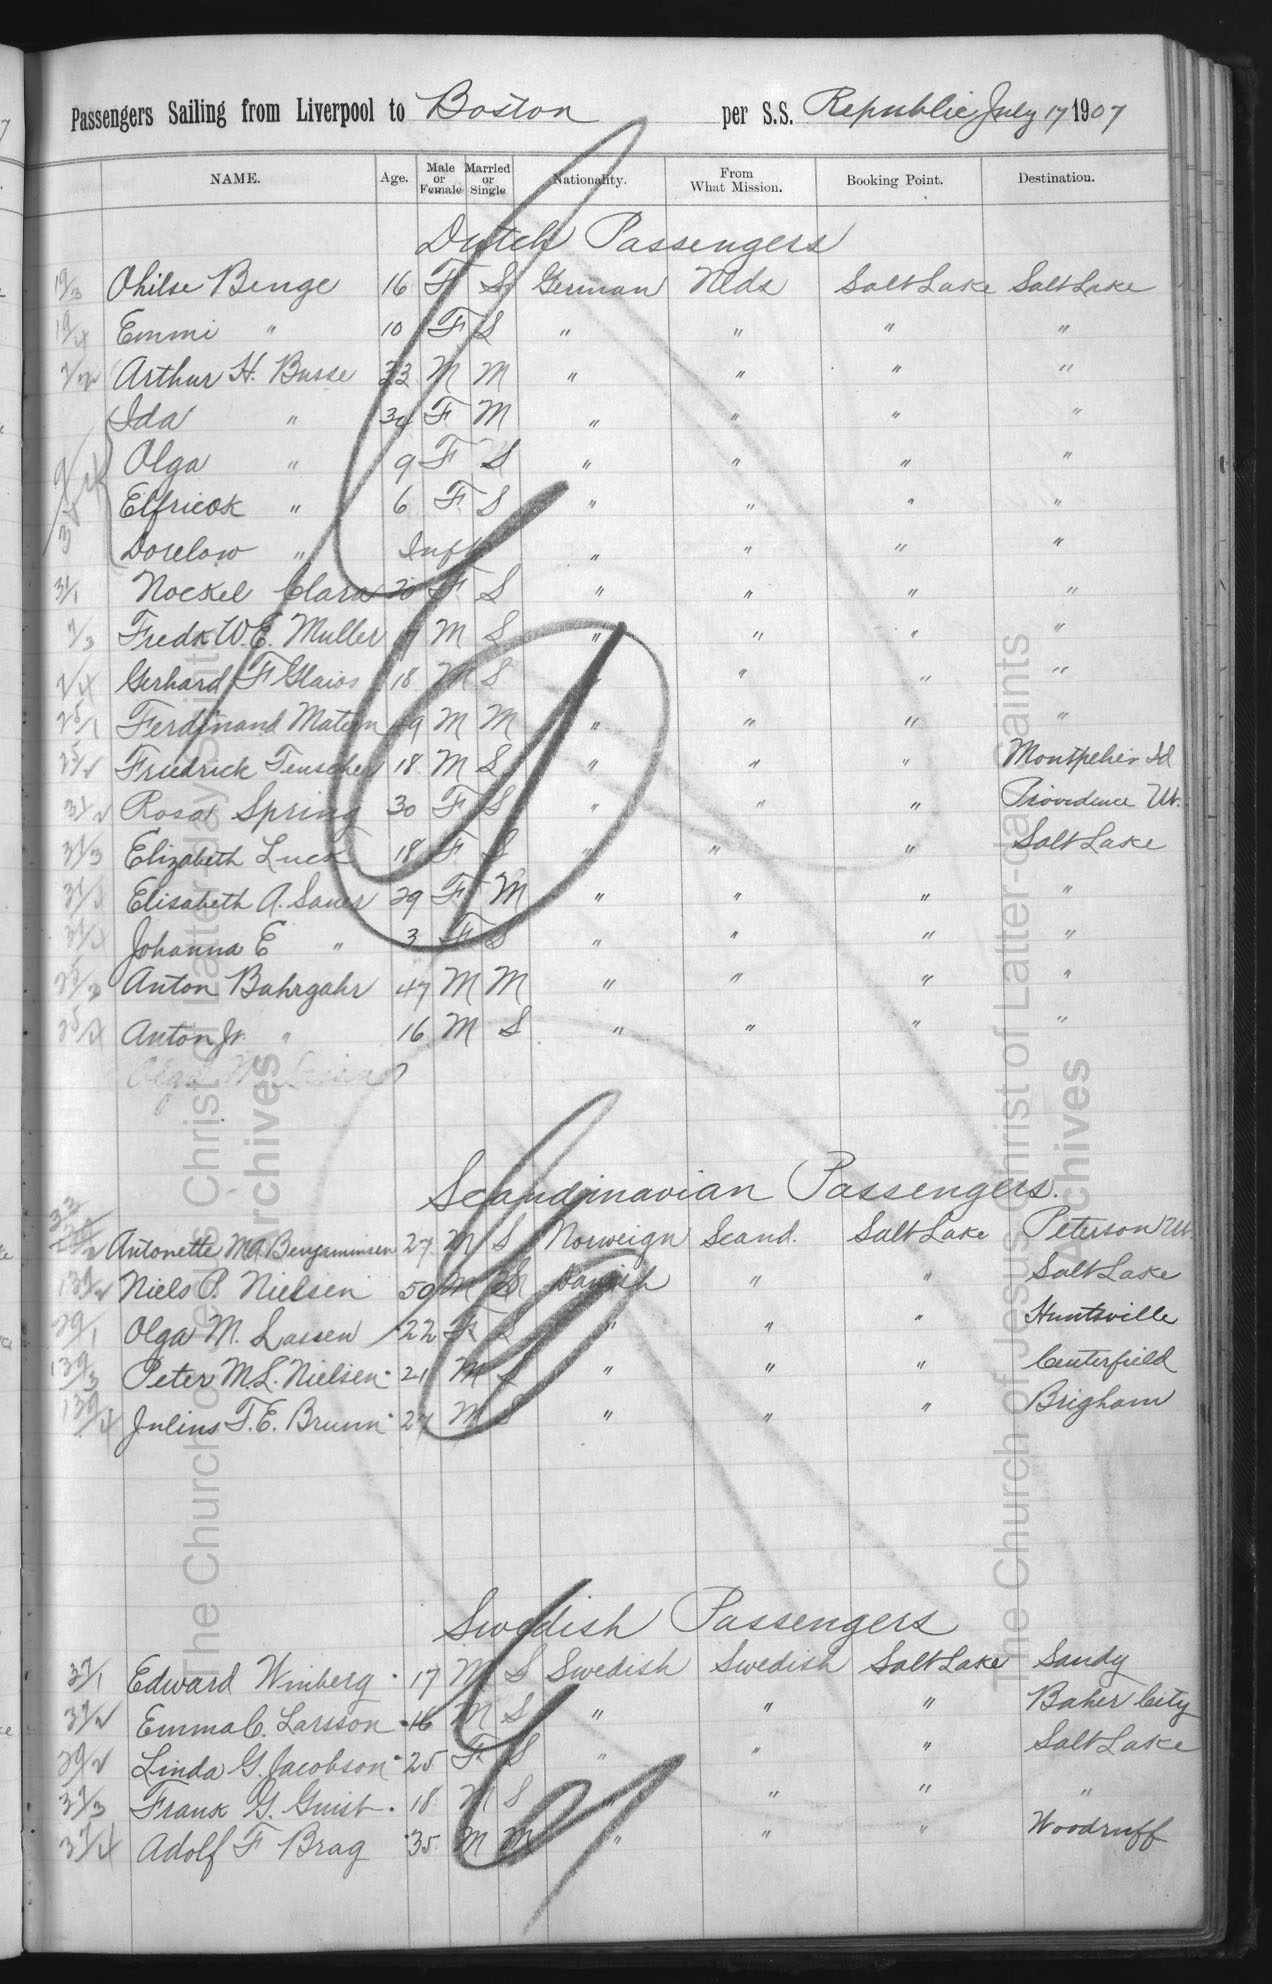 Passengers Sailing from Liverpool to Boston per S.S. Republic July 17 1907
NAME. Age. Male or Female Married or Single Nationality. From What Mission. Booking Point. Destination.
Dutch Passengers
19/3 Ohilse Benge 16 F S German Nlds Salt Lake Salt Lake
19/4 Emmi " 10 F S " " " "
7/2 Arthur H. Busse 33 M M " " " "
Ida " 34 F M " " " "
Olga " 9 F S " " " "
Elfriede " 6 F S " " " "
" Inft " " " "
31/1 Nockel Clara 20 F S " " " "
7/3 Fredk W. E. Muller M S " " " "
7/4 Gerhard F Glaios 18 M S " " " "
25/1 Ferdinand Matern 29 M M " " " "
25/2 Friedrick Teuscher 18 M S " " " Montpelier Id
31/2 Rosa Spring 30 F S " " " Providence Ut.
31/3 Elizabeth Luck 18 F S " " " Salt Lake
Elisabeth A. Sauer 29 F M " " " "
31/4 Johanna E " 3 F S " " " "
25/3 Anton Bahrgahr 47 M M " " " "
25/4 Anton Jr. " 16 M S " " " "
Olga M. Lassen
Scandinavian Passengers.
33/2 Antonette M A. Bengaminsen 27 M S Norweign Scand. Salt Lake Peterson Ut.
139/2 Niels P. Nielsen 50 M Danish " " Salt Lake
29/1 Olga M. Lassen 22 F S " " " Huntsville
139/3 Peter M. L. Nielsen 21 M S " " " Centerfield
139/4 Julius T. E. Brunn 27 M S " " " Brigham
Swedish Passengers
37/1 Edward Winberg 17 M S Swedish Swedish Salt Lake Sandy
37/2 Emma C. Larsson 16 M S " " " Baker City
29/2 Linda G. Jacobson 25 F S " " " Salt Lake
37/3 Frank G. Quist 18 M S " " " "
37/4 Adolf F Brag 35 M M " " " Woodruff
The Church of Jesus Christ of Latter-day Saints
Archives
The Church of Jesus Christ of Latter-day Saints
Archives